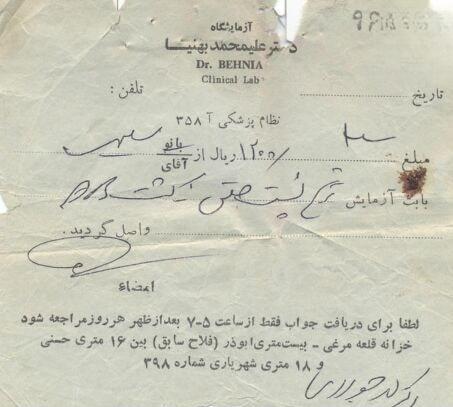 آزمایشگاه
دکتر علیمحمد بهنیا
Dr. BEHNIA
Clinical Lab
تاریخ
تلفن :
نظام پزشکی آ ۳۵۸
مبلغ ۱۲۰۰ ریال از بانو
آقای
بابت آزمایش
واصل گردید.
امضاء
لطفاً برای دریافت جواب فقط از ساعت ۵-۷ بعد از ظهر هر روز مراجعه شود
خزانه قلعه مرغی - بیست متری ابوذر (فلاح سابق) بین ۱۶ متری حسنی
و ۱۸ متری شهریاری شماره ۳۹۸